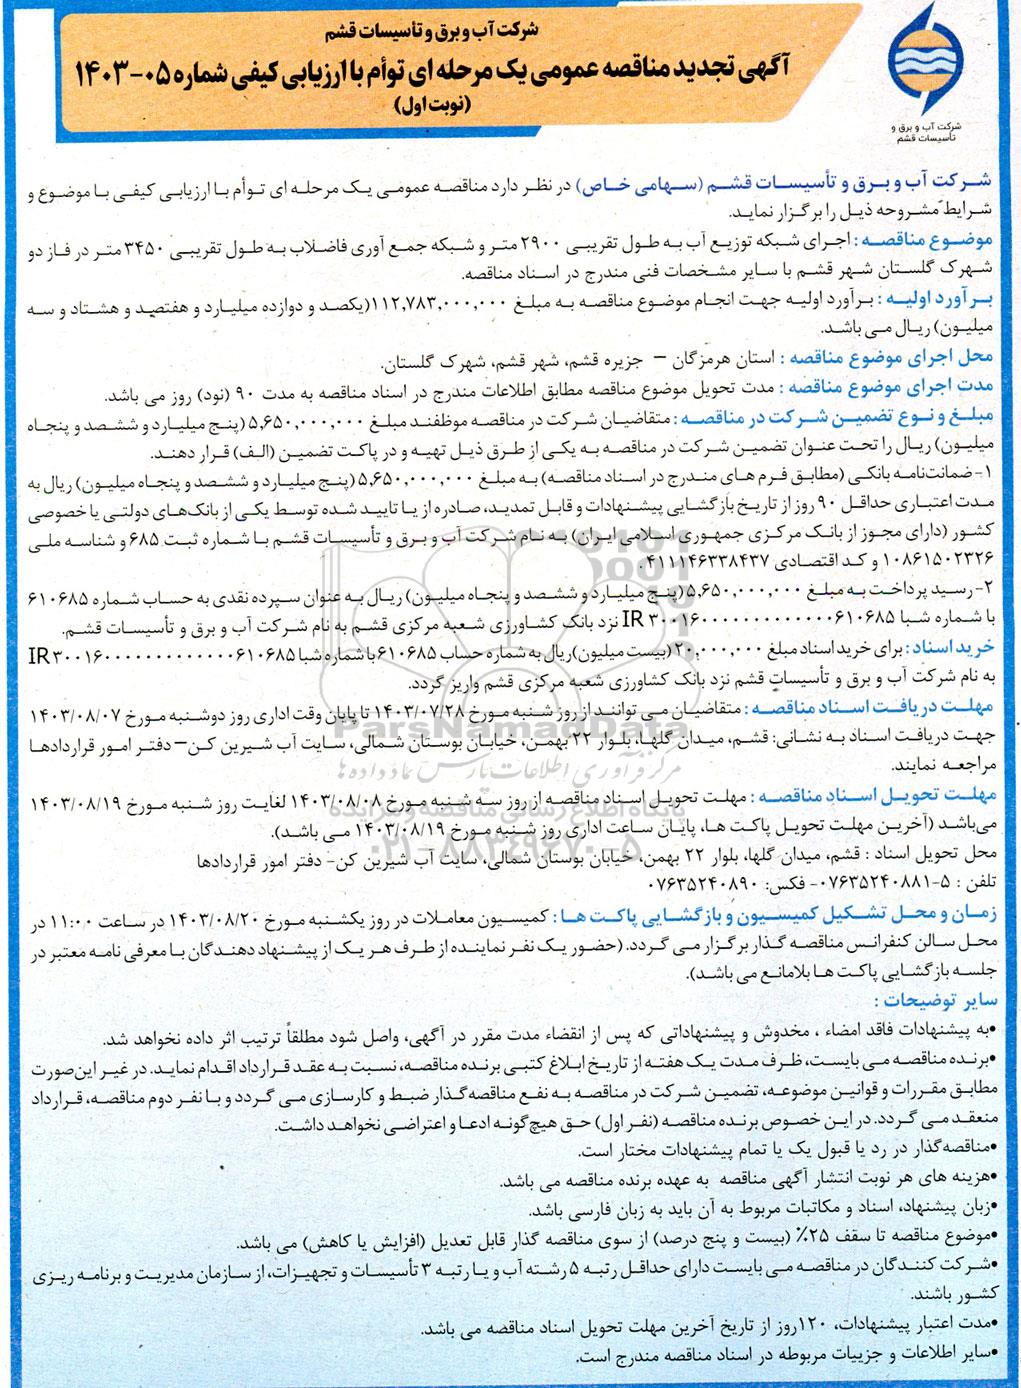 شرکت آب و برق و تأسیسات قشم
آگهی تجدید مناقصه عمومی یک مرحله ای توأم با ارزیابی کیفی شماره ۰۵-۱۴۰۳
(نوبت اول)
شرکت آب و برق و
تأسیسات قشم
شرکت آب و برق و تأسیسات قشم (سهامی خاص) در نظر دارد مناقصه عمومی یک مرحله ای توأم با ارزیابی کیفی با موضوع و
شرایط مشروحه ذیل را برگزار نماید.
موضوع مناقصه : اجرای شبکه توزیع آب به طول تقریبی ۲۹۰۰ متر و شبکه جمع آوری فاضلاب به طول تقریبی ۳۴۵۰ متر در فاز دو
شهرک گلستان شهر قشم با سایر مشخصات فنی مندرج در اسناد مناقصه.
برآورد اولیه : برآورد اولیه جهت انجام موضوع مناقصه به مبلغ ۱۱۲,۷۸۳,۰۰۰,۰۰۰(یکصد و دوازده میلیارد و هفتصد و هشتاد و سه
میلیون) ریال می باشد.
محل اجرای موضوع مناقصه : استان هرمزگان – جزیره قشم، شهر قشم، شهرک گلستان.
مدت اجرای موضوع مناقصه : مدت تحویل موضوع مناقصه مطابق اطلاعات مندرج در اسناد مناقصه به مدت ۹۰ (نود) روز می باشد.
مبلغ و نوع تضمین شرکت در مناقصه : متقاضیان شرکت در مناقصه موظفند مبلغ ۵,۶۵۰,۰۰۰,۰۰۰ (پنج میلیارد و ششصد و پنجاه
میلیون) ریال را تحت عنوان تضمین شرکت در مناقصه به یکی از طرق ذیل تهیه و در پاکت تضمین (الف) قرار دهند.
۱- ضمانت‌نامه بانکی (مطابق فرم های مندرج در اسناد مناقصه) به مبلغ ۵,۶۵۰,۰۰۰,۰۰۰ (پنج میلیارد و ششصد و پنجاه میلیون) ریال به
مدت اعتباری حداقل ۹۰ روز از تاریخ بازگشایی پیشنهادات و قابل تمدید، صادره از یا تایید شده توسط یکی از بانک‌های دولتی یا خصوصی
کشور (دارای مجوز از بانک مرکزی جمهوری اسلامی ایران) به نام شرکت آب و برق و تأسیسات قشم با شماره ثبت ۶۸۵ و شناسه ملی
۱۰۸۶۱۵۰۲۳۲۶ و کد اقتصادی ۴۱۱۱۴۶۳۳۸۴۳۷.
۲- رسید پرداخت به مبلغ ۵,۶۵۰,۰۰۰,۰۰۰ (پنج میلیارد و ششصد و پنجاه میلیون) ریال به عنوان سپرده نقدی به حساب شماره ۶۱۰۶۸۵
با شماره شبا IR ۳۰۰۱۶۰۰۰۰۰۰۰۰۰۰۰۰۰۶۱۰۶۸۵ نزد بانک کشاورزی شعبه مرکزی قشم به نام شرکت آب و برق و تأسیسات قشم.
خرید اسناد : برای خرید اسناد مبلغ ۲۰,۰۰۰,۰۰۰ (بیست میلیون)ریال به شماره حساب ۶۱۰۶۸۵با شماره شبا IR ۳۰۰۱۶۰۰۰۰۰۰۰۰۰۰۰۰۰۶۱۰۶۸۵
به نام شرکت آب و برق و تأسیسات قشم نزد بانک کشاورزی شعبه مرکزی قشم واریز گردد.
مهلت دریافت اسناد مناقصه : متقاضیان می توانند از روز شنبه مورخ ۱۴۰۳/۰۷/۲۸ تا پایان وقت اداری روز دوشنبه مورخ ۱۴۰۳/۰۸/۰۷
جهت دریافت اسناد به نشانی: قشم، میدان گلها، بلوار ۲۲ بهمن، خیابان بوستان شمالی، سایت آب شیرین کن– دفتر امور قراردادها
مراجعه نمایند.
مهلت تحویل اسناد مناقصه : مهلت تحویل اسناد مناقصه از روز سه شنبه مورخ ۱۴۰۳/۰۸/۰۸ لغایت روز شنبه مورخ ۱۴۰۳/۰۸/۱۹
می‌باشد (آخرین مهلت تحویل پاکت ها، پایان ساعت اداری روز شنبه مورخ ۱۴۰۳/۰۸/۱۹ می باشد).
محل تحویل اسناد : قشم، میدان گلها، بلوار ۲۲ بهمن، خیابان بوستان شمالی، سایت آب شیرین کن- دفتر امور قراردادها
تلفن : ۵-۰۷۶۳۵۲۴۰۸۸۱- فکس: ۰۷۶۳۵۲۴۰۸۹۰
زمان و محل تشکیل کمیسیون و بازگشایی پاکت ها : کمیسیون معاملات در روز یکشنبه مورخ ۱۴۰۳/۰۸/۲۰ در ساعت ۱۱:۰۰ در
محل سالن کنفرانس مناقصه گذار برگزار می گردد. (حضور یک نفر نماینده از طرف هر یک از پیشنهاد دهندگان با معرفی نامه معتبر در
جلسه بازگشایی پاکت ها بلامانع می باشد).
سایر توضیحات :
•به پیشنهادات فاقد امضاء ، مخدوش و پیشنهاداتی که پس از انقضاء مدت مقرر در آگهی، واصل شود مطلقاً ترتیب اثر داده نخواهد شد.
•برنده مناقصه می بایست، ظرف مدت یک هفته از تاریخ ابلاغ کتبی برنده مناقصه، نسبت به عقد قرارداد اقدام نماید. در غیر این‌صورت
مطابق مقررات و قوانین موضوعه، تضمین شرکت در مناقصه به نفع مناقصه گذار ضبط و کارسازی می گردد و با نفر دوم مناقصه، قرارداد
منعقد می گردد. در این خصوص برنده مناقصه (نفر اول) حق هیچ‌گونه ادعا و اعتراضی نخواهد داشت.
•مناقصه‌گذار در رد یا قبول یک یا تمام پیشنهادات مختار است.
•هزینه های هر نوبت انتشار آگهی مناقصه به عهده برنده مناقصه می باشد.
•زبان پیشنهاد، اسناد و مکاتبات مربوط به آن باید به زبان فارسی باشد.
•موضوع مناقصه تا سقف ۲۵٪ (بیست و پنج درصد) از سوی مناقصه گذار قابل تعدیل (افزایش یا کاهش) می باشد.
•شرکت کنندگان در مناقصه می بایست دارای حداقل رتبه ۵ رشته آب و یا رتبه ۳ تأسیسات و تجهیزات، از سازمان مدیریت و برنامه ریزی
کشور باشند.
•مدت اعتبار پیشنهادات، ۱۲۰روز از تاریخ آخرین مهلت تحویل اسناد مناقصه می باشد.
•سایر اطلاعات و جزییات مربوطه در اسناد مناقصه مندرج است.
ParsNamadData
مرکز فرآوری اطلاعات پارس نماد داده ها
پایگاه اطلاع رسانی مناقصه و مزایده
۰۲۱-۸۸۳۴۹۶۷۰-۵